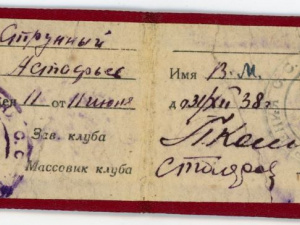 Струнный
Астафьев
Имя В. М.
11 от 11 июня
до 31/XII 38 г.
Зав. клуба
Массовик клуба